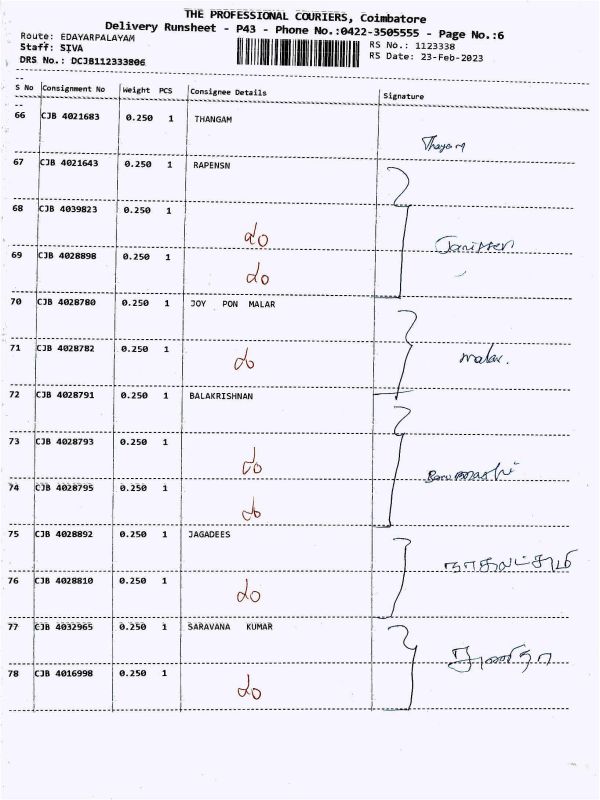 THE PROFESSIONAL COURIERS, Coimbatore
Delivery Runsheet - P43 - Phone No.:0422-3505555 - Page No.:6
Route: EDAYARPALAYAM RS No.: 1123338
Staff: SIVA RS Date: 23-Feb-2023
DRS No.: DCJB112333806
S No Consignment No Weight PCS Consignee Details Signature
66 CJB 4021683 0.250 1 THANGAM
67 CJB 4021643 0.250 1 RAPENSN
68 CJB 4039823 0.250 1 do
69 CJB 4028898 0.250 1 do
70 CJB 4028780 0.250 1 JOY PON MALAR
71 CJB 4028782 0.250 1 do malar.
72 CJB 4028791 0.250 1 BALAKRISHNAN
73 CJB 4028793 0.250 1 do
74 CJB 4028795 0.250 1 do
75 CJB 4028892 0.250 1 JAGADEES
76 CJB 4028810 0.250 1 do
77 CJB 4032965 0.250 1 SARAVANA KUMAR
78 CJB 4016998 0.250 1 do